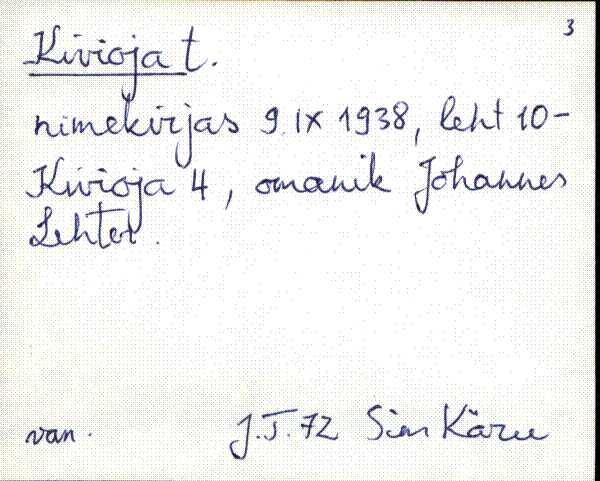 3
Kivioja t.
nimekirjas 9. IX 1938, leht 10-
Kivioja 4, omanik Johannes
Lehter.
van. J.T. 72 Siim Käru